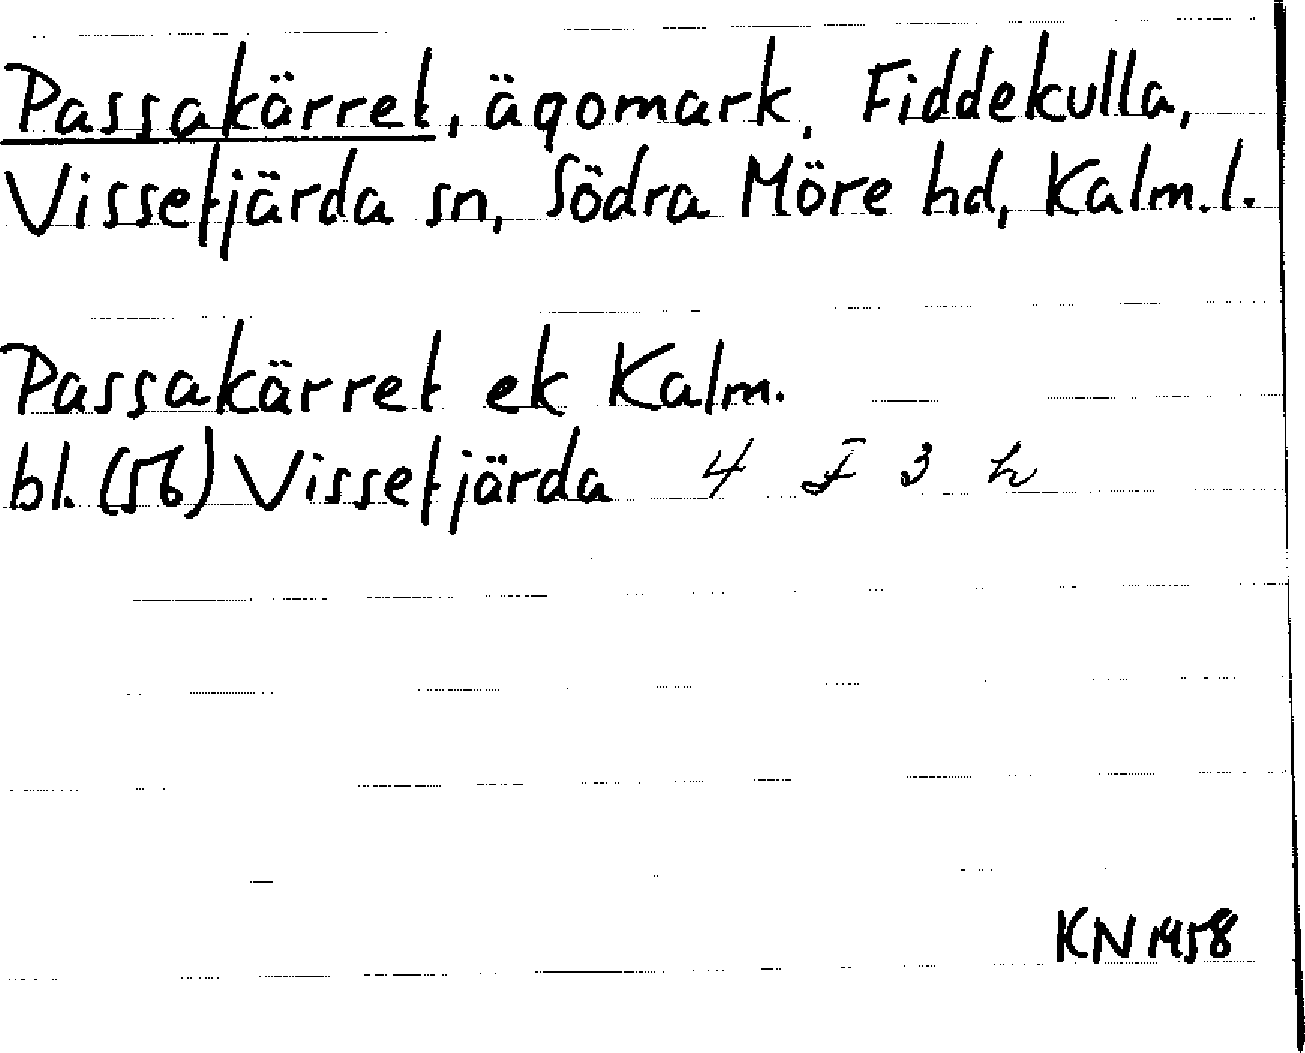 Passakärret, ägomark, Fiddekulla,
Vissefjärda sn, Södra Möre hd, Kalm.l.
Passakärret ek Kalm.
bl. (56) Vissefjärda 4 F 3 h
KN 1958